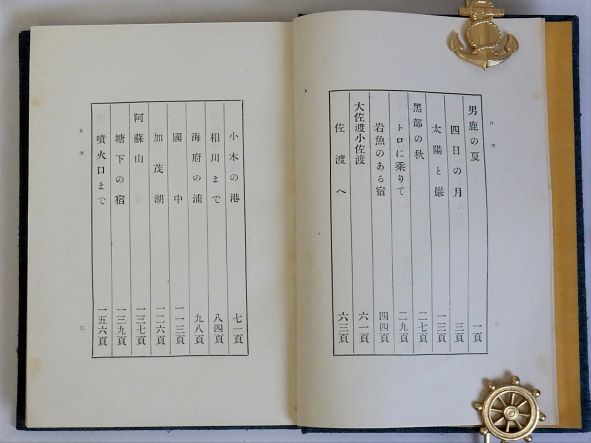 目次
男鹿の夏 一頁
四日の月 三頁
太陽と巖 一三頁
黑部の秋 二七頁
トロに乘りて 二九頁
岩魚のある宿 四四頁
大佐渡小佐渡 六一頁
佐渡へ 六三頁
二
小木の港 七一頁
相川まで 八四頁
海府の浦 九八頁
國中 一一三頁
加茂湖 一二六頁
阿蘇山 一三七頁
塘下の宿 一三九頁
噴火口まで 一五六頁
目次
三